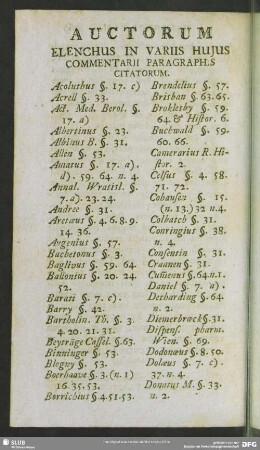 AUCTORUM
ELENCHUS IN VARIIS HUJUS
COMMENTARII PARAGRAPHIS
CITATORUM.
Acoluthus §. 17. c)
Acrell §. 33.
Act. Med. Berol. §.
17. a)
Albertinus §. 23.
Albinus B. §. 31.
Allen §. 53.
Amatus §. 17. a).
d). 59. 64. n. 4.
Annal. Wratisl. §.
7. a). 23. 24.
Andree §. 31.
Aretæus §. 4. 6. 8. 9.
14. 36.
Avgenius §. 57.
Bachetonus §. 3.
Baglivus §. 59. 64.
Ballonius §. 20. 24.
52.
Barati §. 7. c).
Barry §. 42.
Bartholin. Th. §. 3.
4. 20. 21. 31.
Beyträge Cassel. §. 63.
Binninger §. 53.
Blegny §. 53.
Boerhaave §. 3. (n. 1)
16. 35. 53.
Borrichius §. 4. 51. 53.
Brendelius §. 57.
Brisban §. 63. 65.
Broklesby §. 59.
64. & Histor. 6.
Buchwald §. 59.
60. 66.
Camerarius R. Hi-
stor. 2.
Celsus §. 4. 58.
71. 72.
Cohausen §. 15.
(n. 13.) 32. n. 4.
Colbatch §. 31.
Conringius §. 38.
n. 4.
Consentin §. 31.
Craanen §. 31.
Cumenus §. 64. n. 1.
Daniel §. 7. a)
Detharding §. 64.
n. 2.
Diemerbroeck §. 31.
Dispens. pharm.
Wien. §. 69.
Dodonæus §. 8. 50.
Dolæus §. 7. c).
37. n. 4.
Donatus M. §. 33.
n. 2.
SLUB